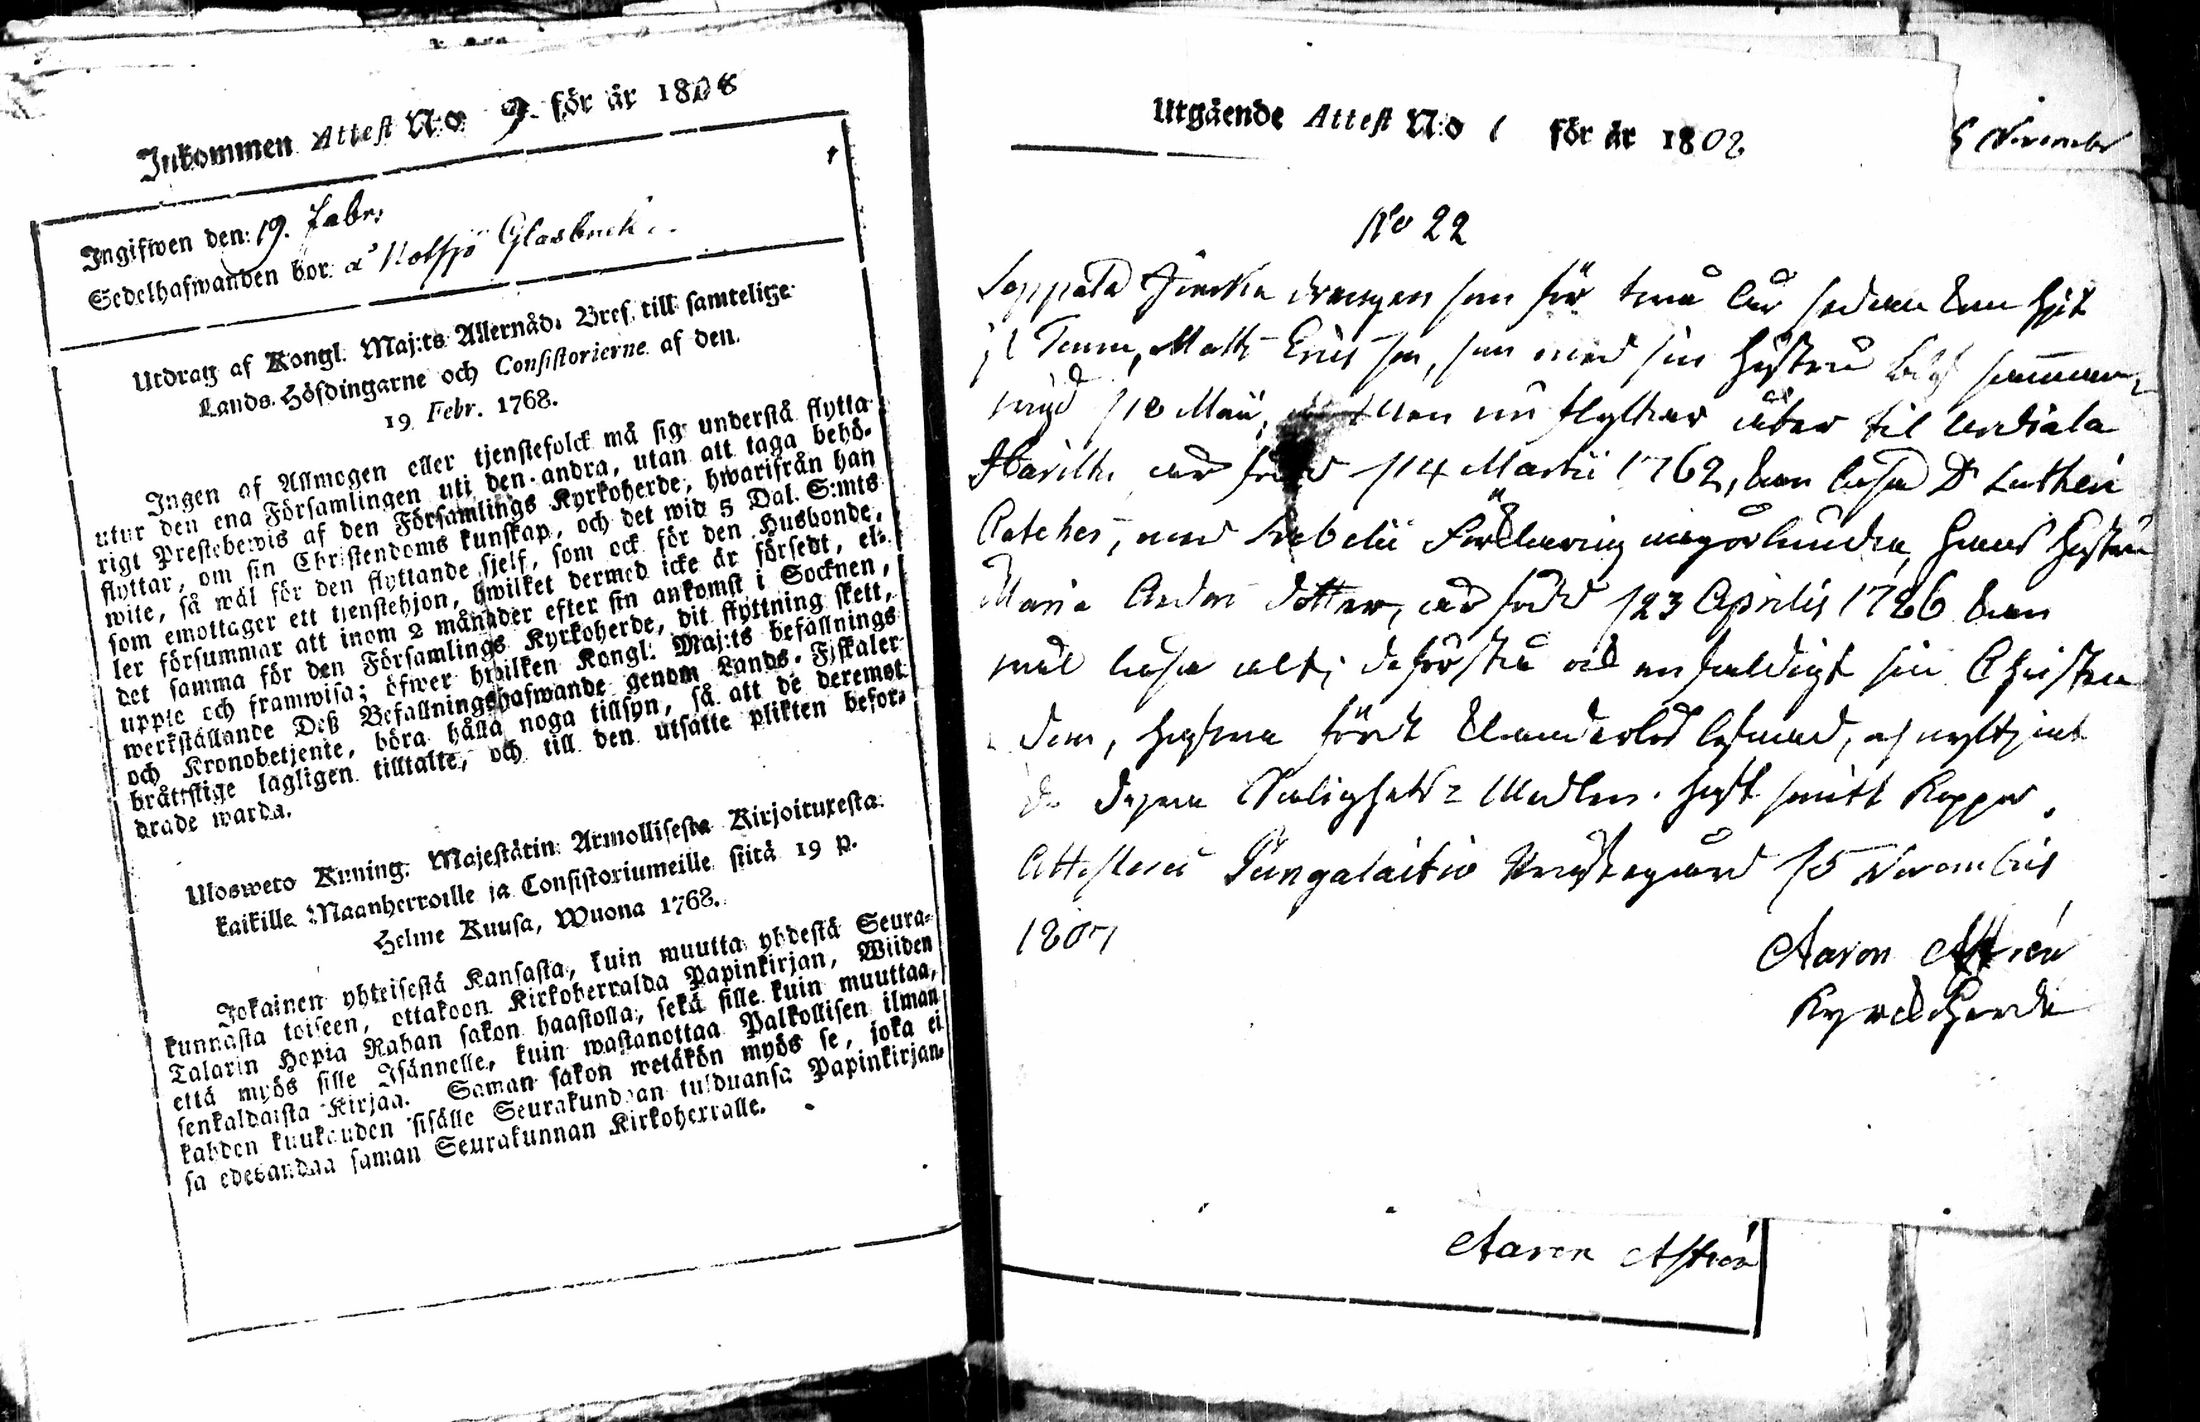 Inkommen Attest N:o 9. för år 1808
Ingifwen den: 19. Febr:
Sedelhafwanden bor: å Notsjö Glasbruk.
Utdrag af Kongl. Maj:ts Allernåd. Bref till samtelige
Lands-Höfdingarne och Consistorierne af den.
19 Febr. 1768.
Ingen af Allmogen eller tjenstefolck må sig understå flytta
utur den ena Församlingen uti den andra, utan att taga behö-
rigt Prestebewis af den Församlings Kyrkoherde, hwarifrån han
flyttar, om sin Christendoms kunskap, och det wid 5 Dal. S:mts
wite, så wäl för den flyttande sjelf, som ock för den Husbonde,
som emottager ett tjenstehjon, hwilket dermed icke är försedt, el-
ler försummar att inom 2 månader efter sin ankomst i Socknen,
det samma för den Församlings Kyrkoherde, dit flyttning skett,
uppte och framwisa; öfwer hwilken Kongl. Maj:ts befallnings
werkställande Deß Befallningshafwande genom Lands-Fiskaler
och Kronobetjente, böra hålla noga tillsyn, så att de deremot
bråttslige lagligen tilltalte, och till den utsatte plikten befor-
drade warda.
Ulosweto Kuning. Majestätin Armollisesta Kirjoituxesta
kaikille Maanherroille ja Consistoriumeille siitä 19 p.
Helme Kuusa, Wuona 1768.
Jokainen yhteisestä Kansasta, kuin muutta yhdestä Seura-
kunnasta toiseen, ottakoon Kirkoherralda Papinkirjan, Wiiden
Talarin Hopia Rahan sakon haastolla, sekä sille kuin muuttaa,
että myös sille Isännelle, kuin wastanottaa Palkollisen ilman
senkaldaista Kirjaa. Saman sakon wetäkön myös se, joka ei
kahden kuukauden sisälle Seurakundaan tulduansa Papinkirjan-
sa edesandaa saman Seurakunnan Kirkoherralle.
Utgående Attest N:o 1 för år 1802
5 November
No 22
drengen som för två år sedan kom hjit
Matts Ericsson, som med sin Hustru
Maii, nu flyttar åter til Urdiala
14 Martii 1762, kan läsa Dr Lutheri
Catches, med Svebelii Förklaring någorlunda, hans Hustru
Maria Anders dotter, är född 23 Aprilis 1786 kan
väl läsa alt, och enfaldigt sin Christen
dom, hafva fördt lefnad,
Salighets Medlen. haft Koppor.
Attesterar Pungalaitio Prestegård 5 Novembris
1807
Aaron Astrén
Kyrckoherde
Aaron Astrén